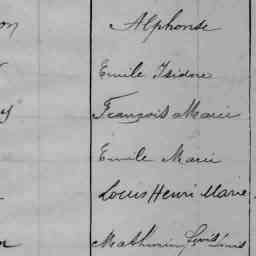 on Alphonse
Emile Isidore
y François Marie
Emile Marie
Louis Henri Marie
Mathurin Louis